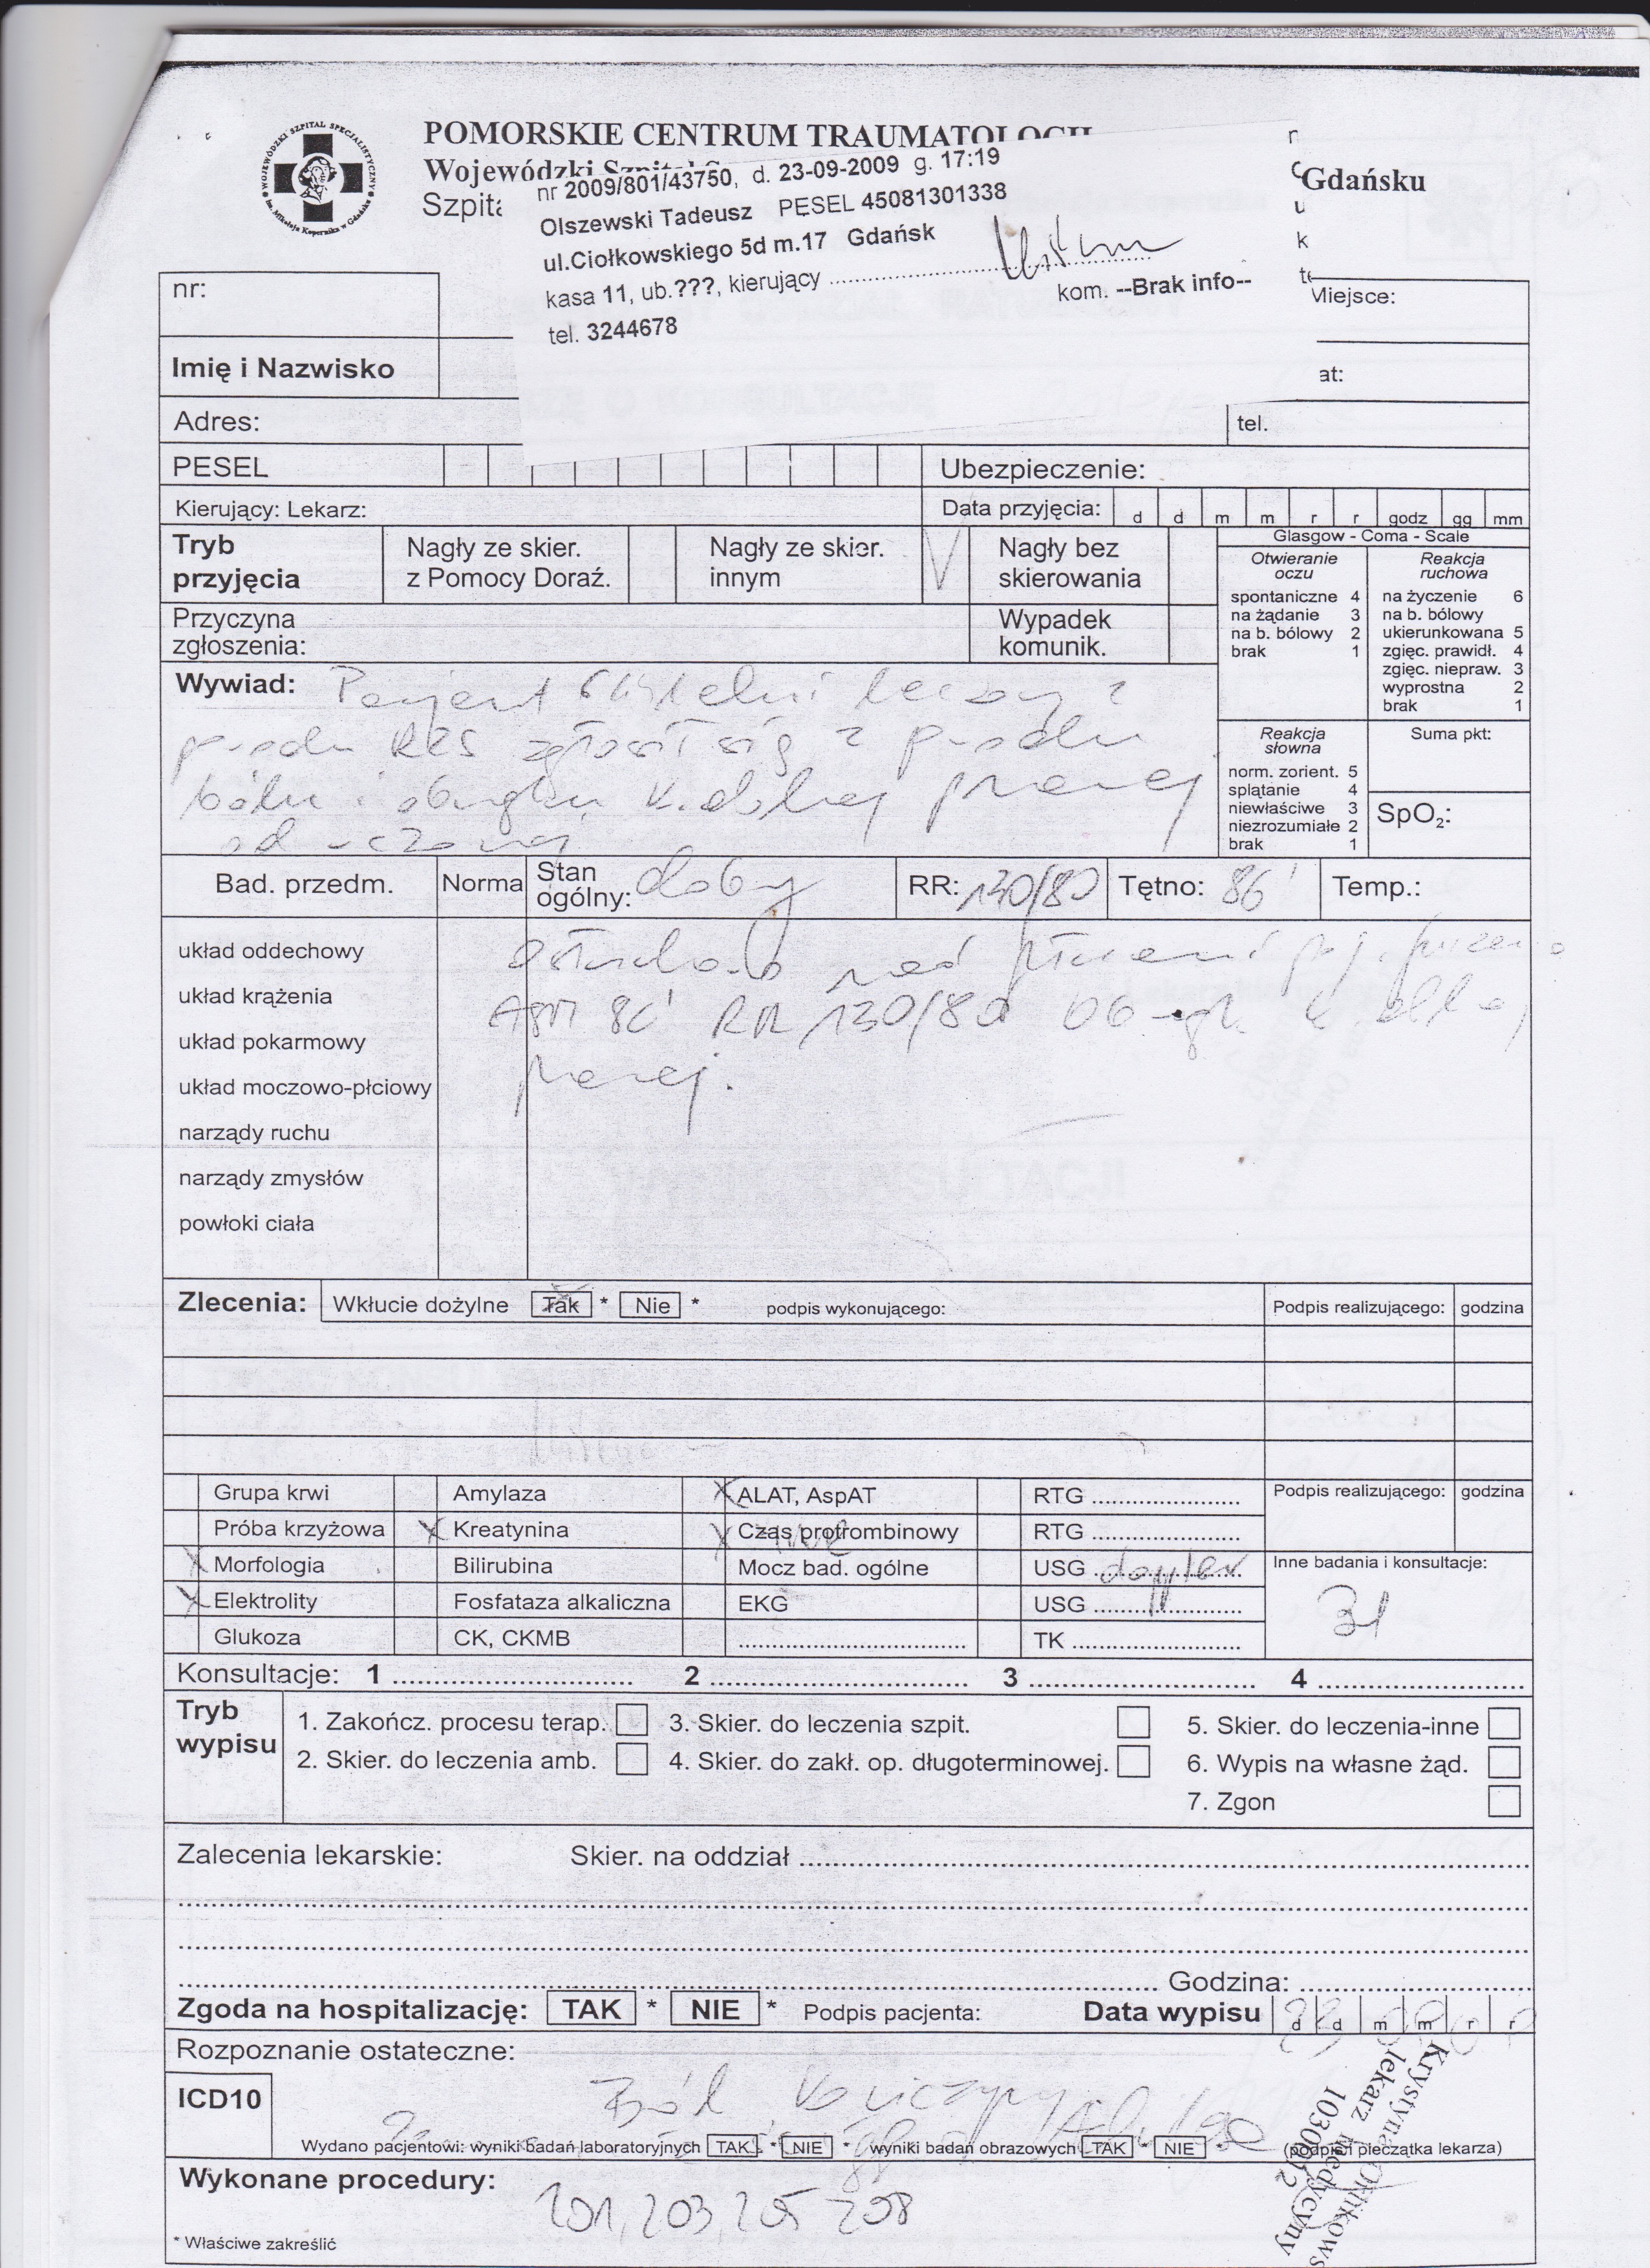 WOJEWÓDZKI SZPITAL SPECJALISTYCZNY
im. Mikołaja Kopernika w Gdańsku
POMORSKIE CENTRUM TRAUMATOLOGII
Wojewódzki Szpital
Gdańsku
nr 2009/801/43750, d. 23-09-2009 g. 17:19
Olszewski Tadeusz PESEL 45081301338
ul.Ciołkowskiego 5d m.17 Gdańsk
kasa 11, ub.???, kierujący
kom. --Brak info--
tel. 3244678
nr:
Miejsce:
Imię i Nazwisko
at:
Adres:
tel.
PESEL
Ubezpieczenie:
Kierujący: Lekarz:
Data przyjęcia: d d m m r r godz gg mm
Tryb przyjęcia
Nagły ze skier. z Pomocy Doraź.
Nagły ze skier. innym
V
Nagły bez skierowania
Przyczyna zgłoszenia:
Wypadek komunik.
Glasgow - Coma - Scale
Otwieranie oczu
spontaniczne 4
na żądanie 3
na b. bólowy 2
brak 1
Reakcja ruchowa
na życzenie 6
na b. bólowy
ukierunkowana 5
zgięc. prawidł. 4
zgięc. niepraw. 3
wyprostna 2
brak 1
Reakcja słowna
norm. zorient. 5
splątanie 4
niewłaściwe 3
niezrozumiałe 2
brak 1
Suma pkt:
SpO2:
Wywiad: Pacjent leczony z
powodu zgłosił się z powodu
bólu i obrzęku k. dolnej prawej
od wczoraj
Bad. przedm.
Norma
Stan ogólny: dobry
RR: 130/80
Tętno: 86'
Temp.:
układ oddechowy
układ krążenia
układ pokarmowy
układ moczowo-płciowy
narządy ruchu
narządy zmysłów
powłoki ciała
nad płucami
RR 130/80
prawej.
Zlecenia: Wkłucie dożylne Tak * Nie * podpis wykonującego:
Podpis realizującego: godzina
Grupa krwi
Amylaza
X ALAT, AspAT
RTG
Podpis realizującego: godzina
Próba krzyżowa
X Kreatynina
X Czas protrombinowy
RTG
X Morfologia
Bilirubina
Mocz bad. ogólne
USG doppler
Inne badania i konsultacje:
X Elektrolity
Fosfataza alkaliczna
EKG
USG
Glukoza
CK, CKMB
TK
Konsultacje: 1 2 3 4
Tryb wypisu
1. Zakończ. procesu terap.
3. Skier. do leczenia szpit.
5. Skier. do leczenia-inne
2. Skier. do leczenia amb.
4. Skier. do zakł. op. długoterminowej.
6. Wypis na własne żąd.
7. Zgon
Zalecenia lekarskie: Skier. na oddział
Godzina:
Zgoda na hospitalizację: TAK * NIE * Podpis pacjenta:
Data wypisu d d m m r r
Rozpoznanie ostateczne:
ICD10
Ból kończyny
Wydano pacjentowi: wyniki badań laboratoryjnych TAK * NIE * wyniki badań obrazowych TAK * NIE * (podpis i pieczątka lekarza)
Krystyna
lekarz medycyny
Wykonane procedury:
201, 203, 205 208
* Właściwe zakreślić